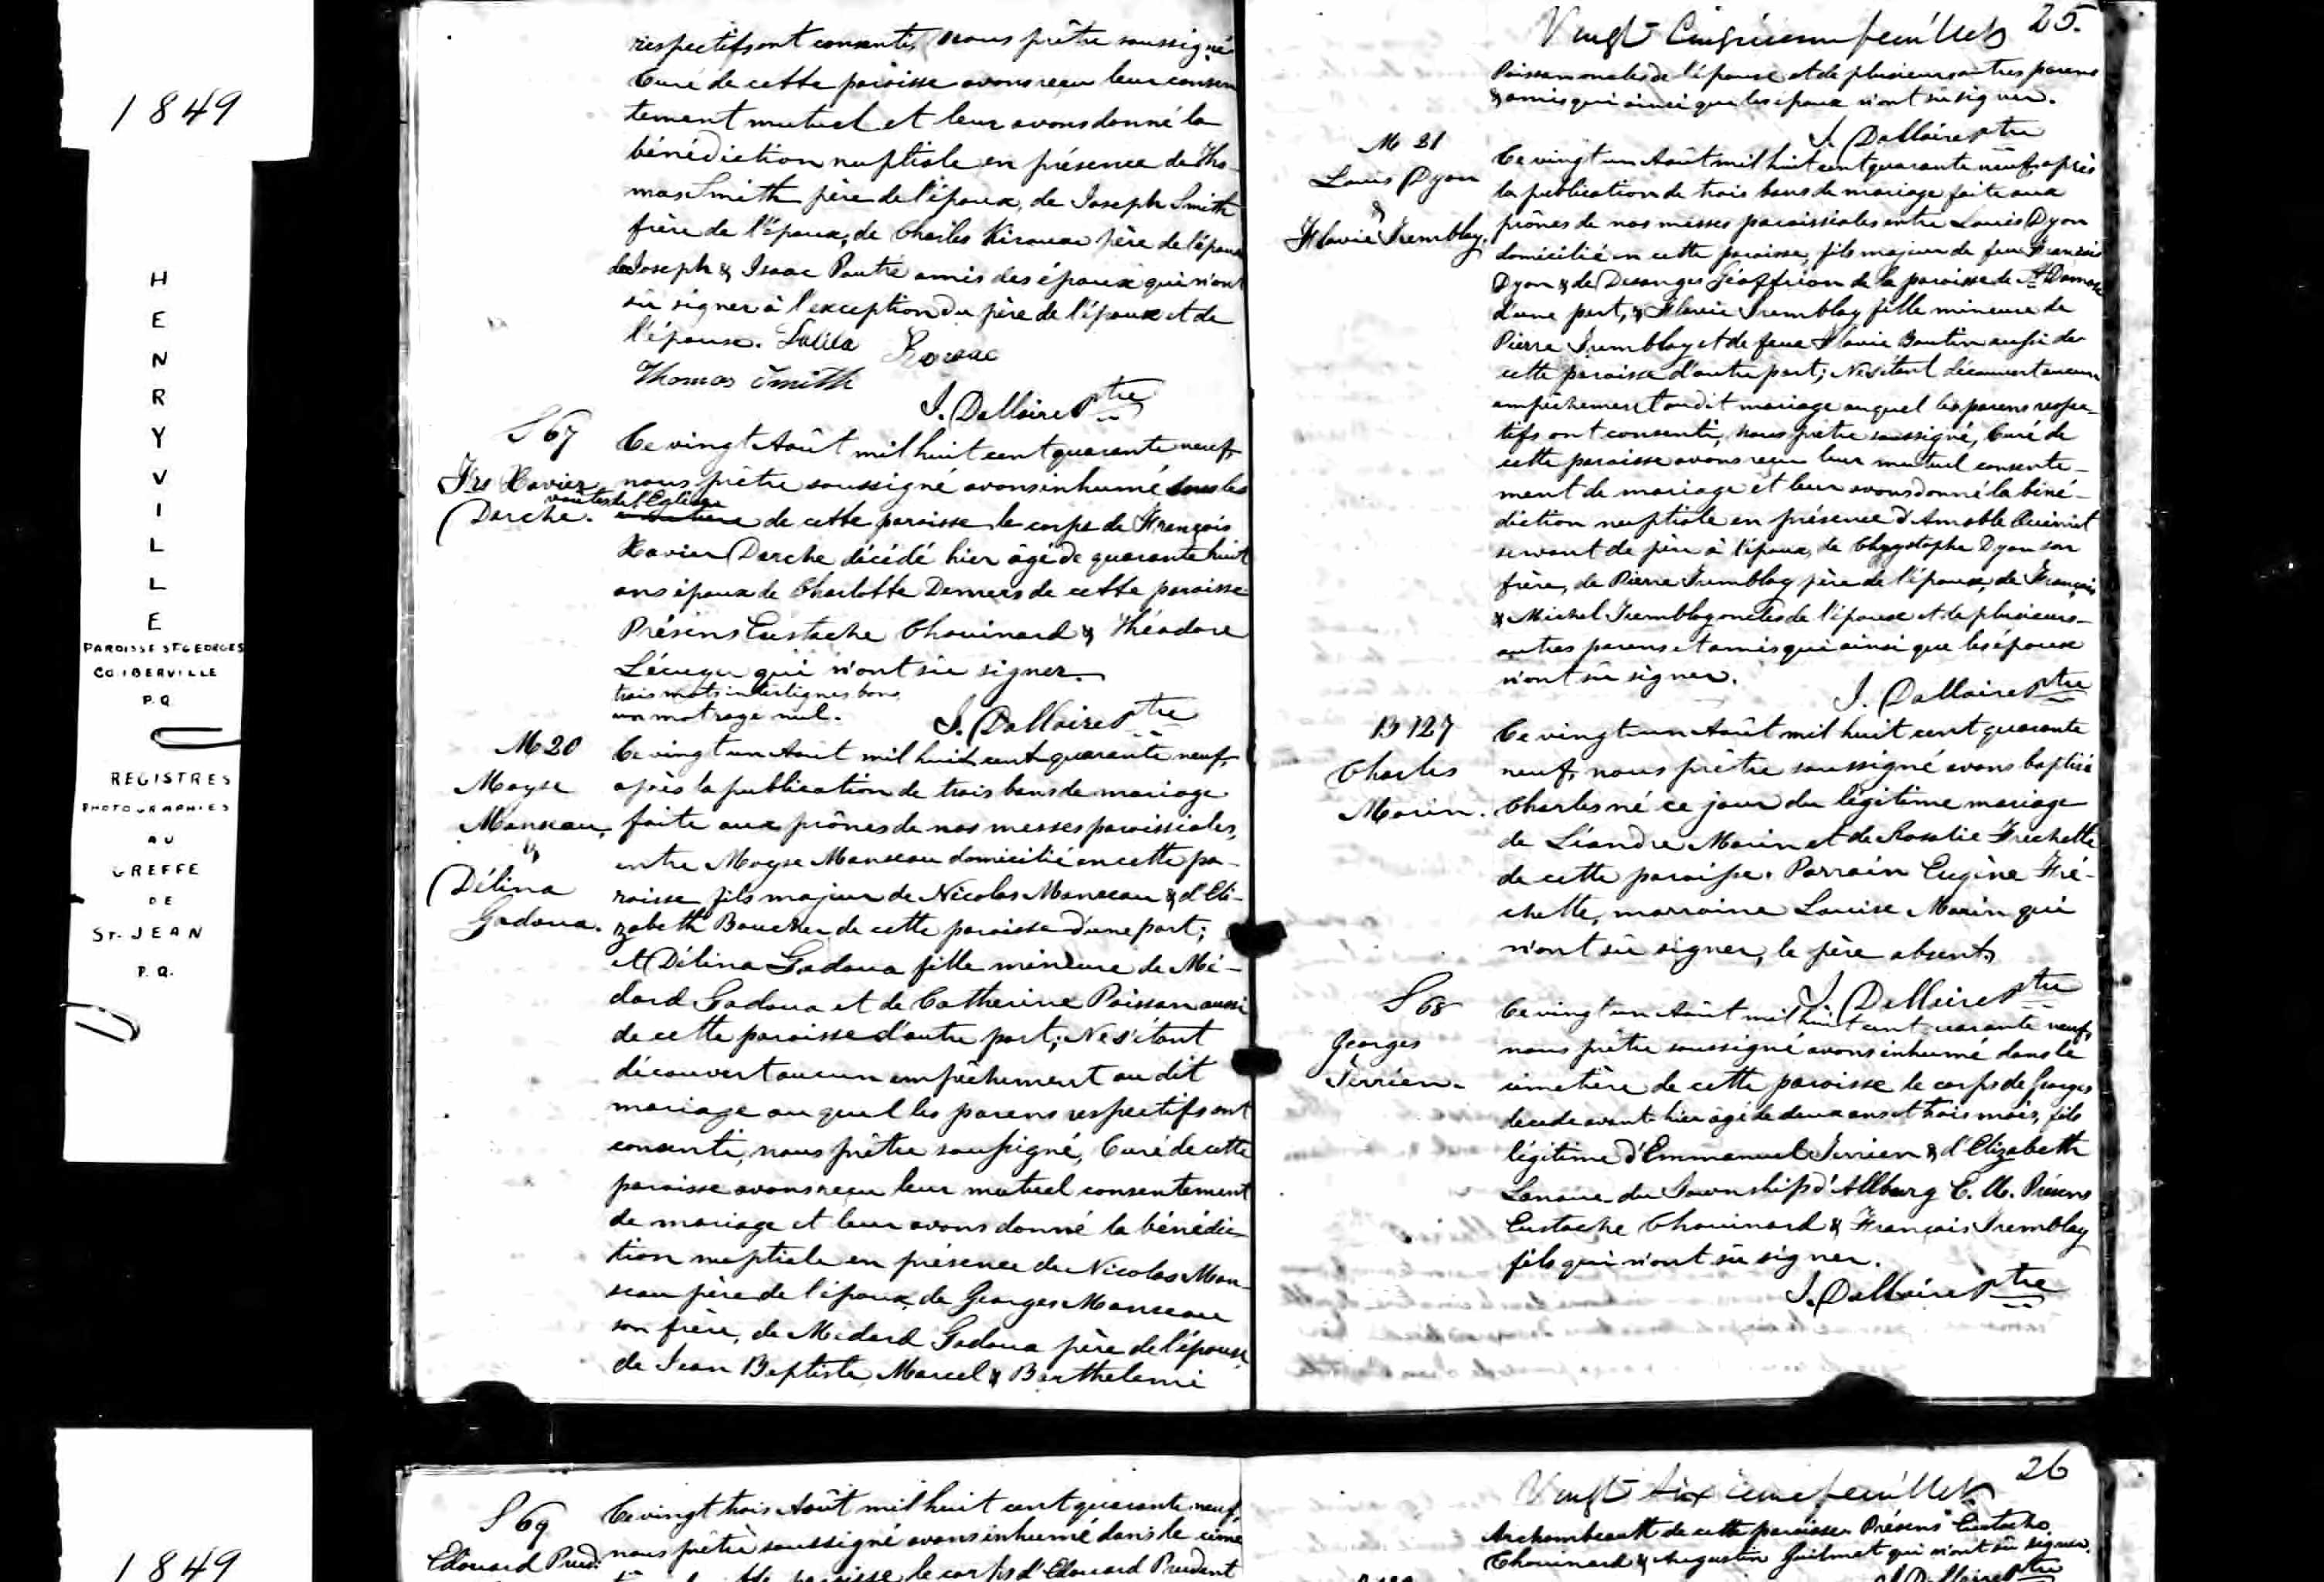 1849
HENRYVILLE
PAROISSE ST GEORGES
CO. IBERVILLE
P.Q.
REGISTRES
PHOTOGRAPHIES
AU
GREFFE
DE
ST. JEAN
P.Q.
respectifs ont consenti, nous prêtre soussigné
Curé de cette paroisse avons reçu leur consen
tement mutuel et leur avons donné la
bénédiction nuptiale en présence de Tho-
mas Smith père de l'époux, de Joseph Smith
frère de l'époux, de Charles Kirouac père de l'épouse
de Joseph & Isaac Poutré amis des époux qui n'ont
sû signer à l'exception du père de l'époux et de
l'épouse.
Thomas Smith
J. Dallaire Ptre
S 67
Frs Xavier
Darche.
Ce vingt Août mil huit cent quarante neuf,
nous prêtre soussigné avons inhumé sous les
voûtes de l'Eglise
de cette paroisse le corps de François
Xavier Darche décédé hier âgé de quarante huit
ans époux de Charlotte Demers de cette paroisse
Présens Eustache Chouinard & Théodore
Lécuyer qui n'ont sû signer.
trois mots interlignes bons
un mot rayé nul.
J. Dallaire Ptre
M 20
Moyse
Manseau
&
Délina
Gadoua.
Ce vingt un Août mil huit cent quarante neuf,
après la publication de trois bans de mariage
faite aux prônes de nos messes paroissiales,
entre Moyse Manseau domicilié en cette pa-
roisse fils majeur de Nicolas Manseau & d'Eli-
zabeth Boucher de cette paroisse d'une part;
et Délina Gadoua fille mineure de Mé-
dard Gadoua et de Catherine Poissan aussi
de cette paroisse d'autre part; Ne s'étant
découvert aucun empêchement au dit
mariage au quel les parens respectifs ont
consenti, nous prêtre soussigné, Curé de cette
paroisse avons reçu leur mutuel consentement
de mariage et leur avons donné la bénédic-
tion nuptiale en présence de Nicolas Man-
seau père de l'époux, de Georges Manseau
son frère, de Médard Gadoua père de l'épouse,
de Jean Baptiste, Marcel & Barthelemi
Vingt Cinquième feuillet 25.
Poissan oncles de l'épouse et de plusieurs autres parens
& amis qui ainsi que les époux n'ont sû signer.
J. Dallaire Ptre
M 21
Louis Dyon
&
Flavie Tremblay.
Ce vingt un Août mil huit cent quarante neuf, après
la publication de trois bans de mariage faite aux
prônes de nos messes paroissiales entre Louis Dyon
domicilié en cette paroisse, fils majeur de feu François
Dyon & de Desanges Géoffrion de la paroisse de St Damase
d'une part, & Flavie Tremblay fille mineure de
Pierre Tremblay et de feue Flavie Boutin aussi de
cette paroisse d'autre part; Ne s'étant découvert aucun
empêchement au dit mariage auquel les parens respec-
tifs ont consenti, nous prêtre soussigné, Curé de
cette paroisse avons reçu leur mutuel consente-
ment de mariage et leur avons donné la béné-
diction nuptiale en présence d'Amable
servant de père à l'époux, de Chrystophe Dyon son
frère, de Pierre Tremblay père de l'épouse, de François
& Michel Tremblay oncles de l'épouse et de plusieurs
autres parens et amis qui ainsi que les époux
n'ont sû signer.
J. Dallaire Ptre
B 127
Charles
Morin.
Ce vingt un Août mil huit cent quarante
neuf, nous prêtre soussigné avons baptisé
Charles né ce jour du légitime mariage
de Léandre Morin et de Rosalie Frechette
de cette paroisse. Parrain Eugène Fré-
chette, marraine Louise Morin qui
n'ont sû signer, le père absent.
J. Dallaire Ptre
S 68
Georges
Terrien.
Ce vingt un Août mil huit cent quarante neuf,
nous prêtre soussigné avons inhumé dans le
cimetière de cette paroisse le corps de Georges
décédé avant hier âgé de deux ans et trois mois, fils
légitime d'Emmanuel Terrien & d'Elizabeth
Lanoue du Township d'Allburg E. U. Présens
Eustache Chouinard & François Tremblay
fils qui n'ont sû signer.
J. Dallaire Ptre
1849
S 69
Edouard Prud.
Ce vingt trois Août mil huit cent quarante neuf,
nous prêtre soussigné avons inhumé dans le cime
paroisse, le corps d'Edouard Prudent
Vingt Sixième feuillet 26
Archambeault de cette paroisse. Présens Eustache
Chouinard & Augustin Guilmet qui n'ont sû signer.
J. Dallaire Ptre